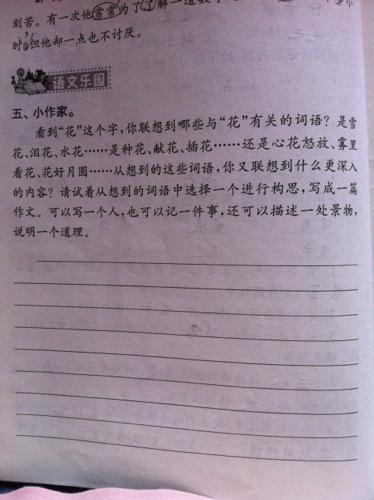 刻苦。有一次他常常为了了解一道数学
时，但他却一点也不讨厌。
语文乐园
五、小作家。
看到“花”这个字，你联想到哪些与“花”有关的词语？是雪
花、泪花、水花……是种花、献花、插花……还是心花怒放、雾里
看花、花好月圆……从想到的这些词语，你又联想到什么更深入
的内容？请试着从想到的词语中选择一个进行构思，写成一篇
作文。可以写一个人，也可以记一件事，还可以描述一处景物，
说明一个道理。